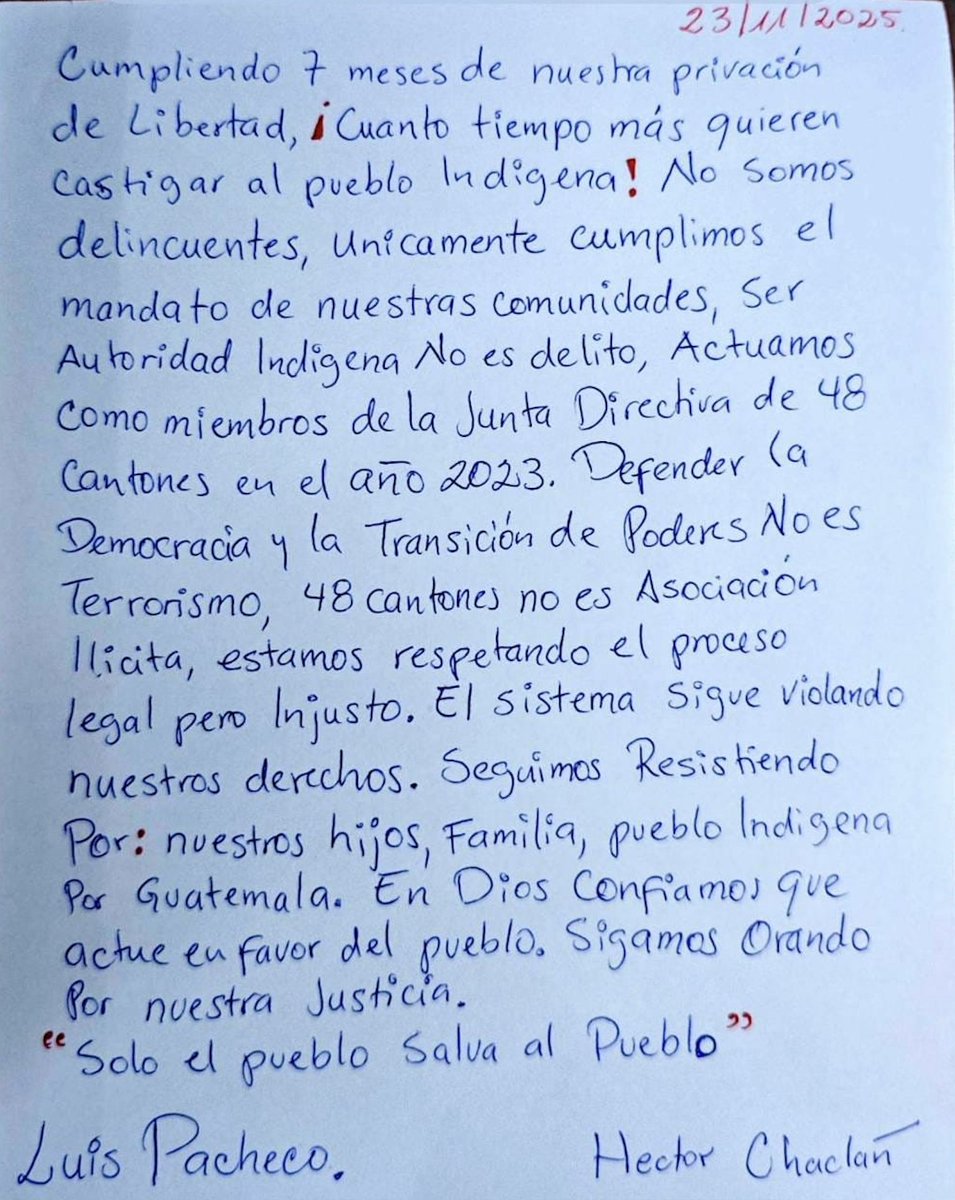 23/11/2025.
Cumpliendo 7 meses de nuestra privación
de Libertad, ¡Cuanto tiempo más quieren
castigar al pueblo Indigena! No somos
delincuentes, unicamente cumplimos el
mandato de nuestras comunidades, Ser
Autoridad Indigena No es delito, Actuamos
Como miembros de la Junta Directiva de 48
Cantones en el año 2023. Defender la
Democracia y la Transición de Poderes No es
Terrorismo, 48 cantones no es Asociación
Ilicita, estamos respetando el proceso
legal pero Injusto. El sistema Sigue violando
nuestros derechos. Seguimos Resistiendo
Por: nuestros hijos, Familia, pueblo Indigena
Por Guatemala. En Dios Confiamos que
actue en favor del pueblo. Sigamos Orando
Por nuestra Justicia.
“Solo el pueblo Salva al Pueblo”
Luis Pacheco. Hector Chaclán